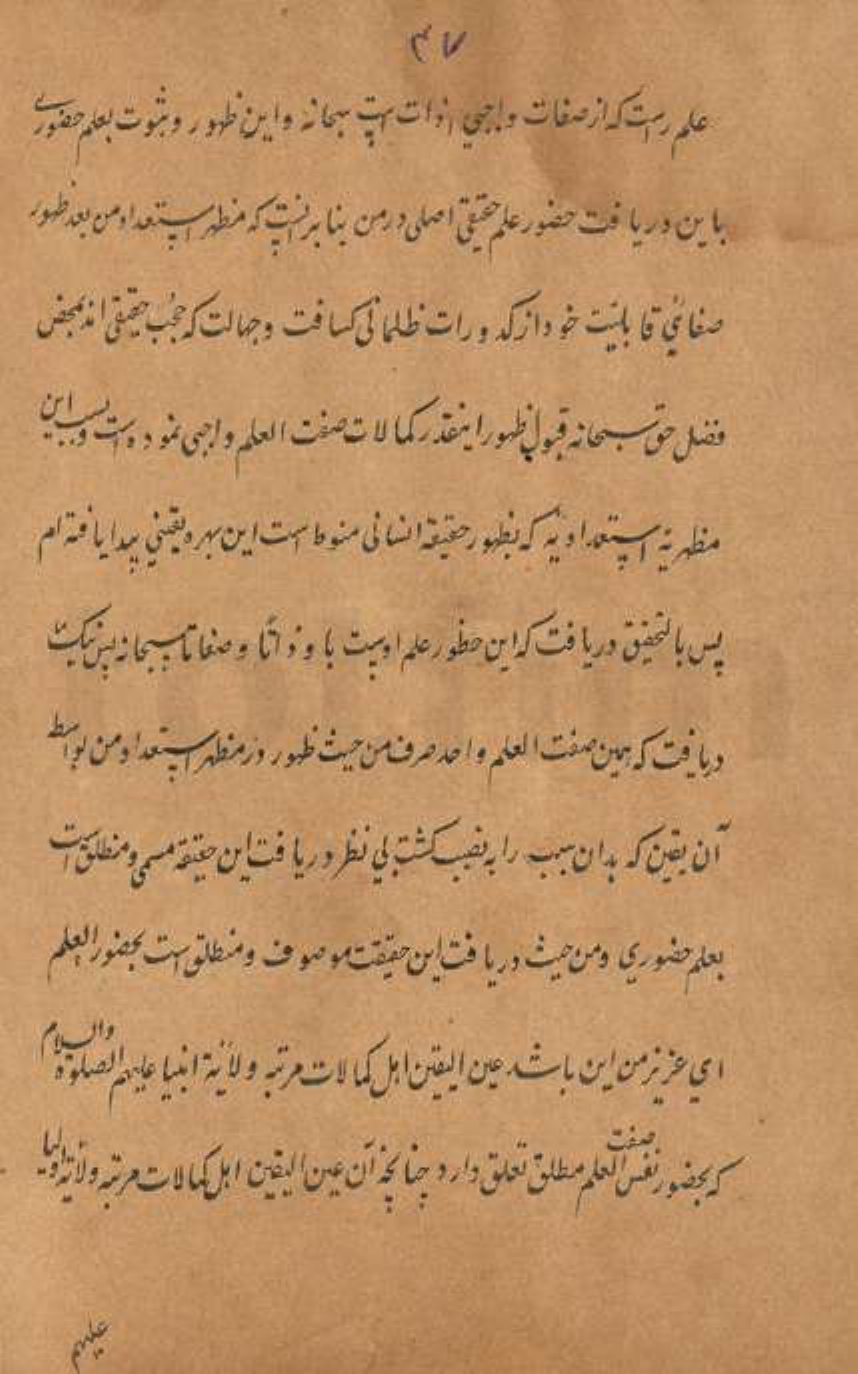 ۴۷
علم راست که از صفات واجبی ذات است سبحانه و این ظهور و ثبوت بعلم حضوری
با این دریافت حضور علم حقیقی اصلی در من بنا بر انست که مظهر استعداد من بعد ظهور
صفائی قابلیت خود از کدورات ظلمانی کسافت و جهالت که حجب حقیقی اند بمحض
فضل حق سبحانه قبول ظهور اینقدر کمالات صفت العلم واجبی نموده است و بسبب این
مظهریة استعدادیه که بظهور حقیقة انسانی منوط است این بهره یقینی پیدا یافته ام
پس بالتحقیق دریافت که این حظور علم اوست با و ذاتا و صفاتا سبحانه پس نیک
دریافت که همین صفت العلم واحد صرف من حیث ظهور در مظهر استعداد من بواسطه
آن یقین که بدان سبب را به نصیب کشت بی نظر دریافت این حقیقة مسمی و منطلق است
بعلم حضوری و من حیث دریافت این حقیقت موصوف و منطلق است بحضور العلم
ای عزیز من این باشد عین الیقین اهل کمالات مرتبه ولایة انبیا علیهم الصلوة والسلام
که بحضور نفس صفت العلم مطلق تعلق دارد چنانچه آن عین الیقین اهل کمالات مرتبه ولایة اولیا
علیهم